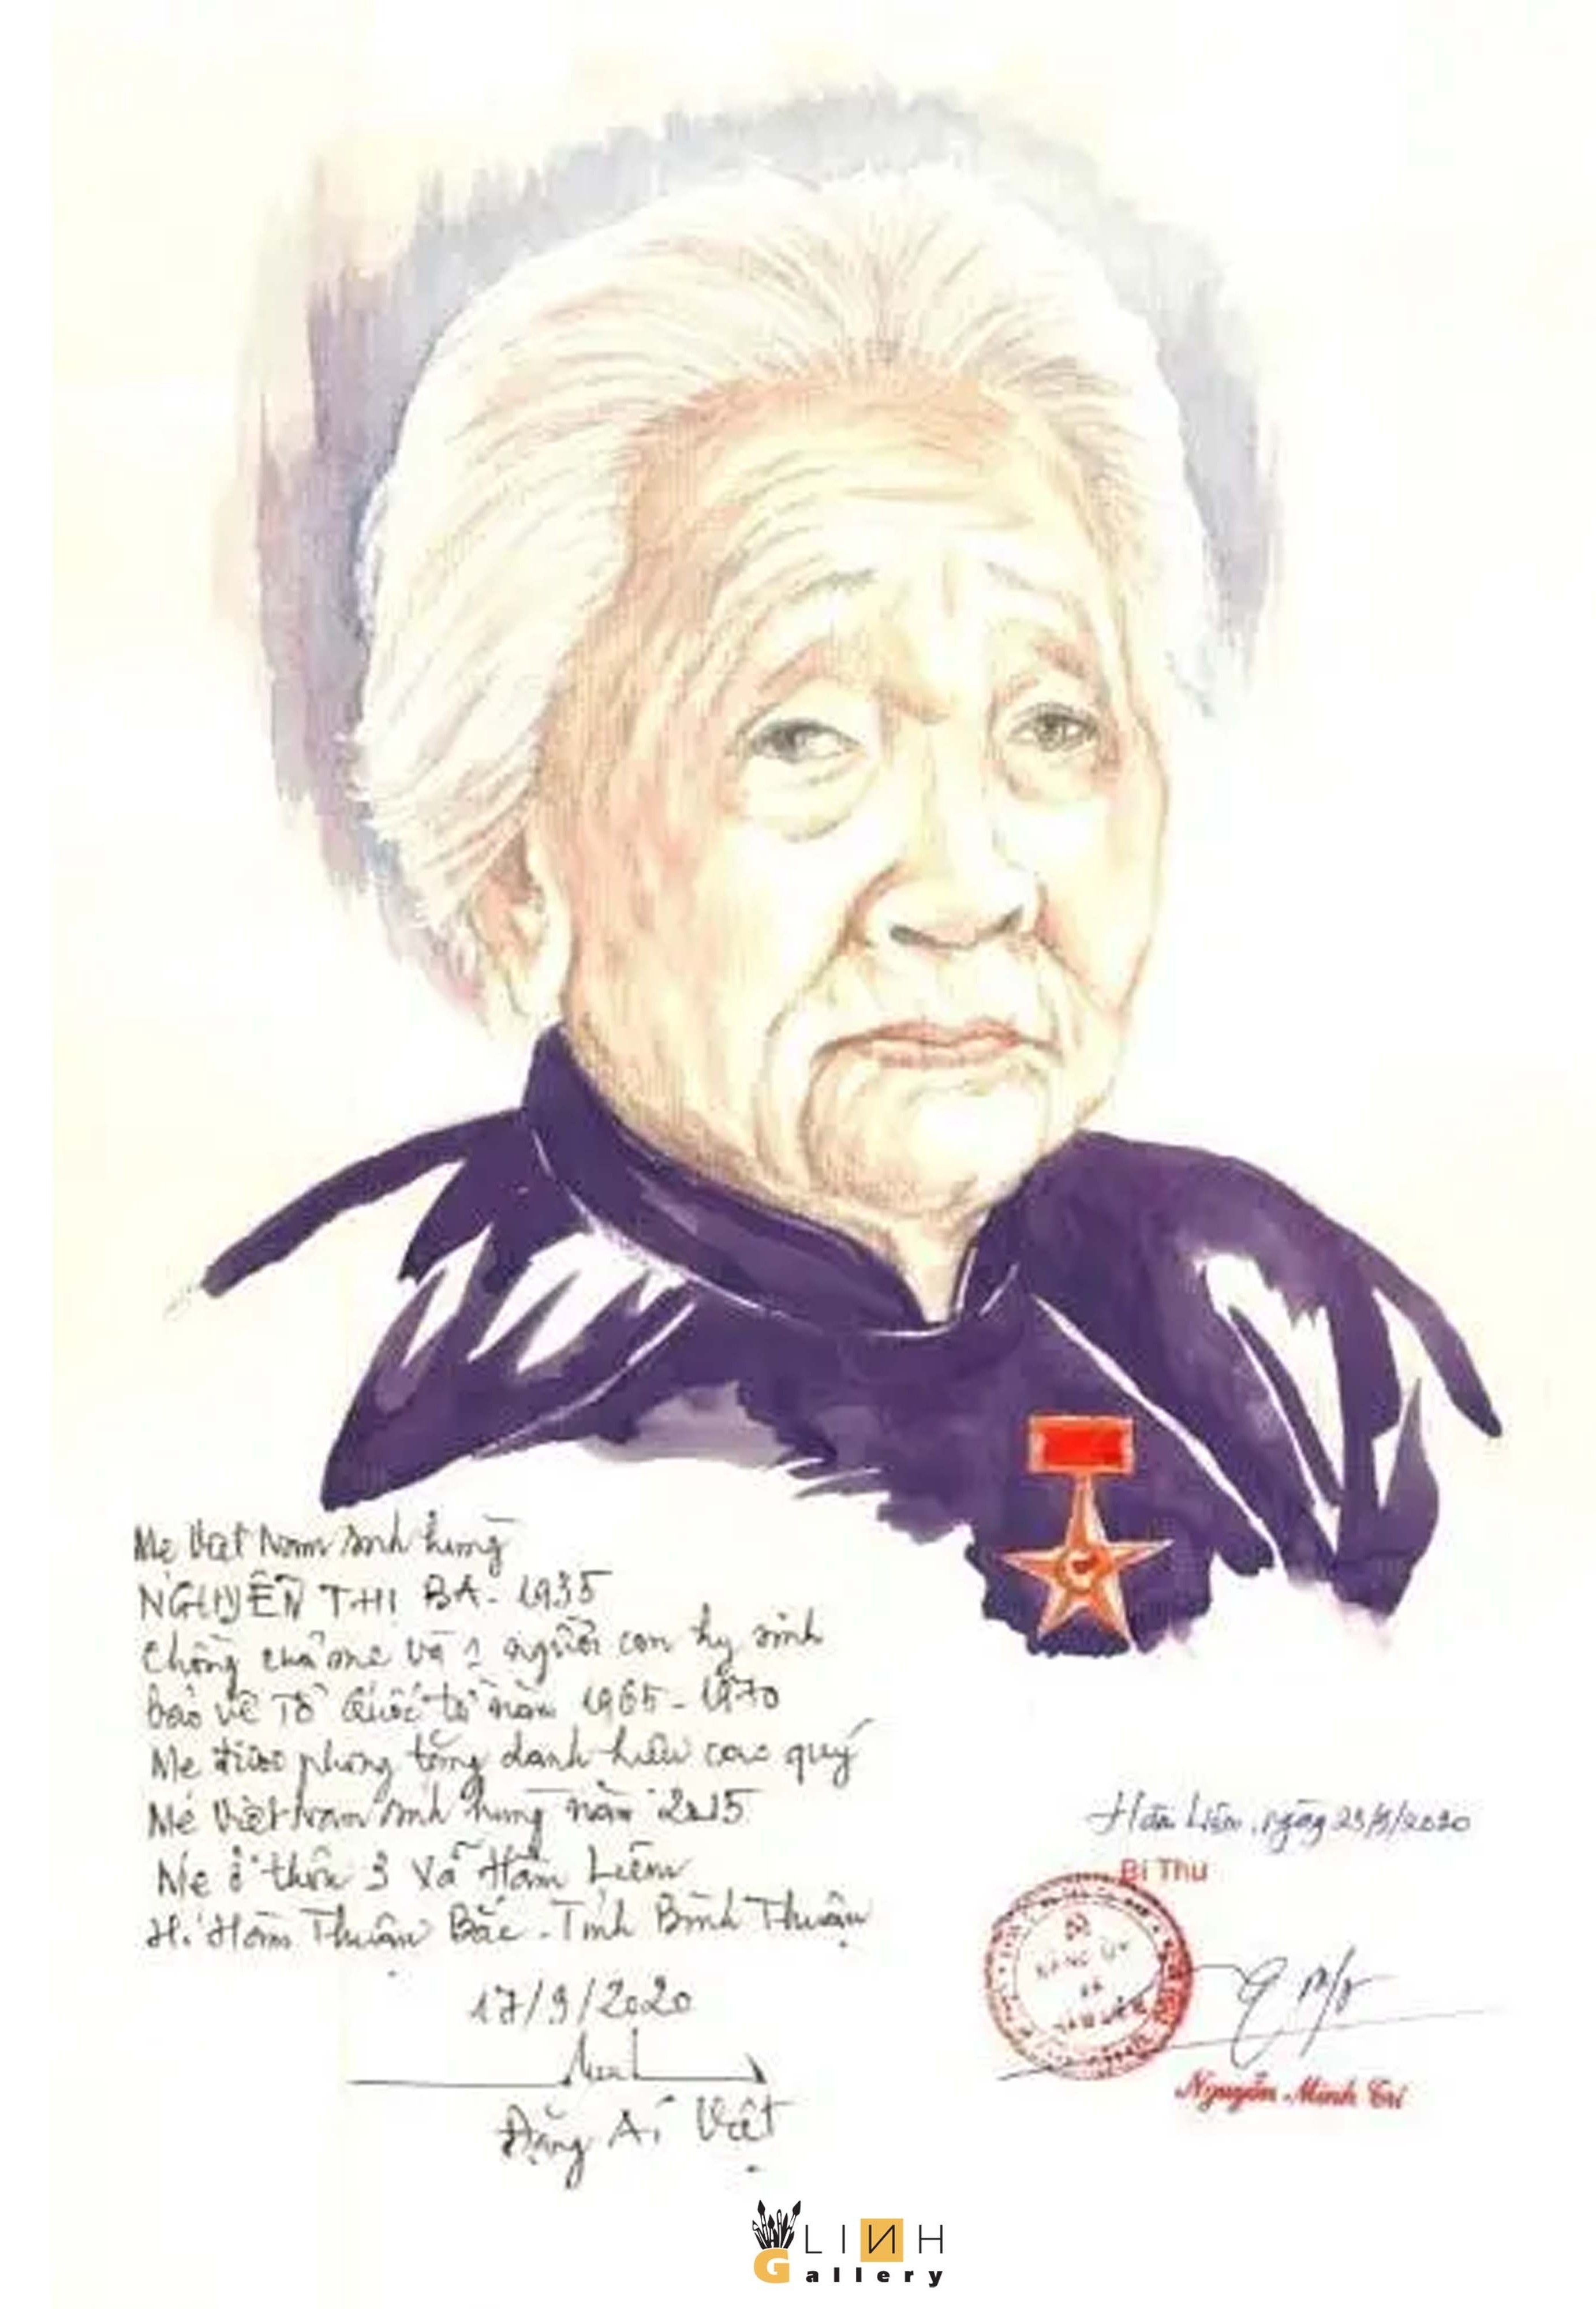 Mẹ Việt Nam anh hùng
NGUYỄN THỊ BA - 1935
Chồng của mẹ và 1 người con hy sinh
bảo vệ Tổ Quốc từ năm 1965 - 1970
Mẹ được phong tặng danh hiệu cao quý
Mẹ Việt Nam anh hùng năm 2015
Mẹ ở thôn 3 xã Hàm Liêm
H. Hàm Thuận Bắc - Tỉnh Bình Thuận
17/9/2020
Đặng Ái Việt
Hàm Liêm, ngày 23/9/2020
Bí Thư
ĐẢNG ỦY
XÃ
HÀM LIÊM
Nguyễn Minh Trí
LINH
Gallery